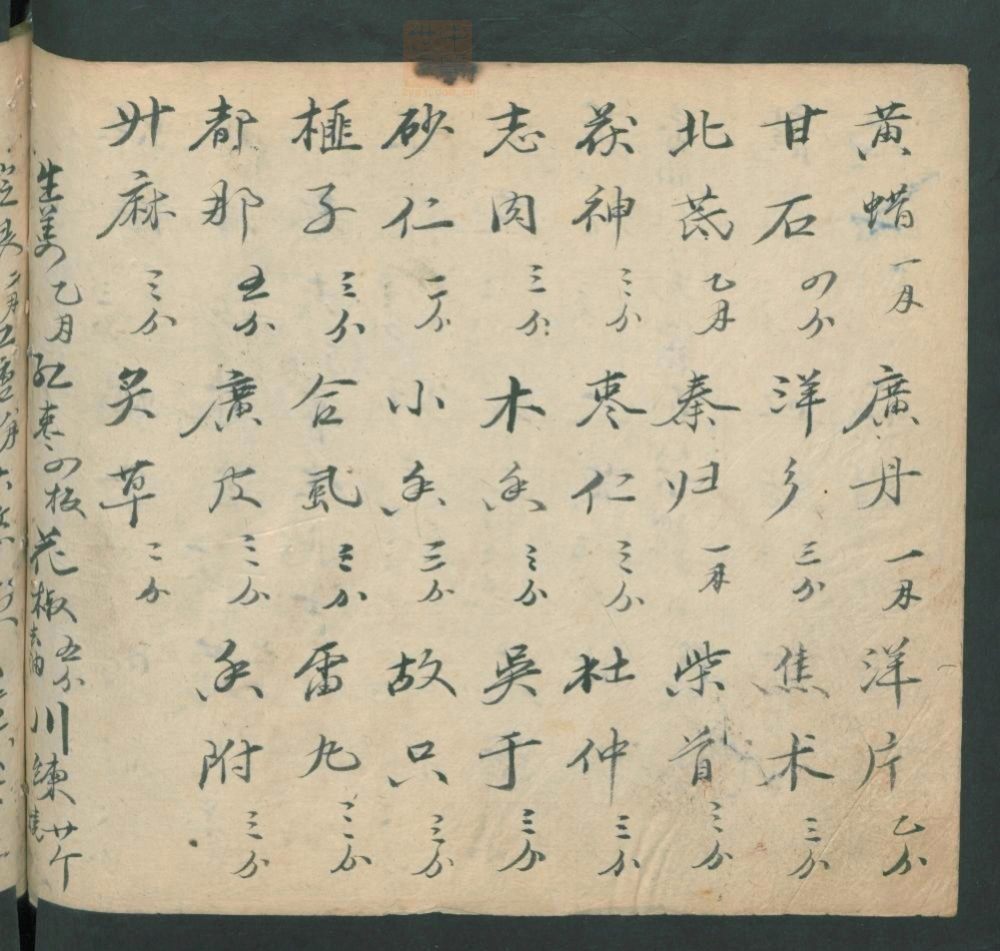 黄蜡 一月 廣丹 一月 洋片 乙分
甘石 四分 洋乡 三分 焦术 三分
北芪 乙月 秦归 一月 柴首 三分
茯神 三分 枣仁 三分 杜仲 三分
志肉 三分 木香 三分 吳于 三分
砂仁 二分 小香 三分 故只 三分
榧子 三分 合虱 三分 雷丸 三分
都那 五分 廣皮 三分 香附 三分
升麻 三分 炙草 二分
生姜 乙月 红枣 四板 花椒 去油 五分 川練 廿个